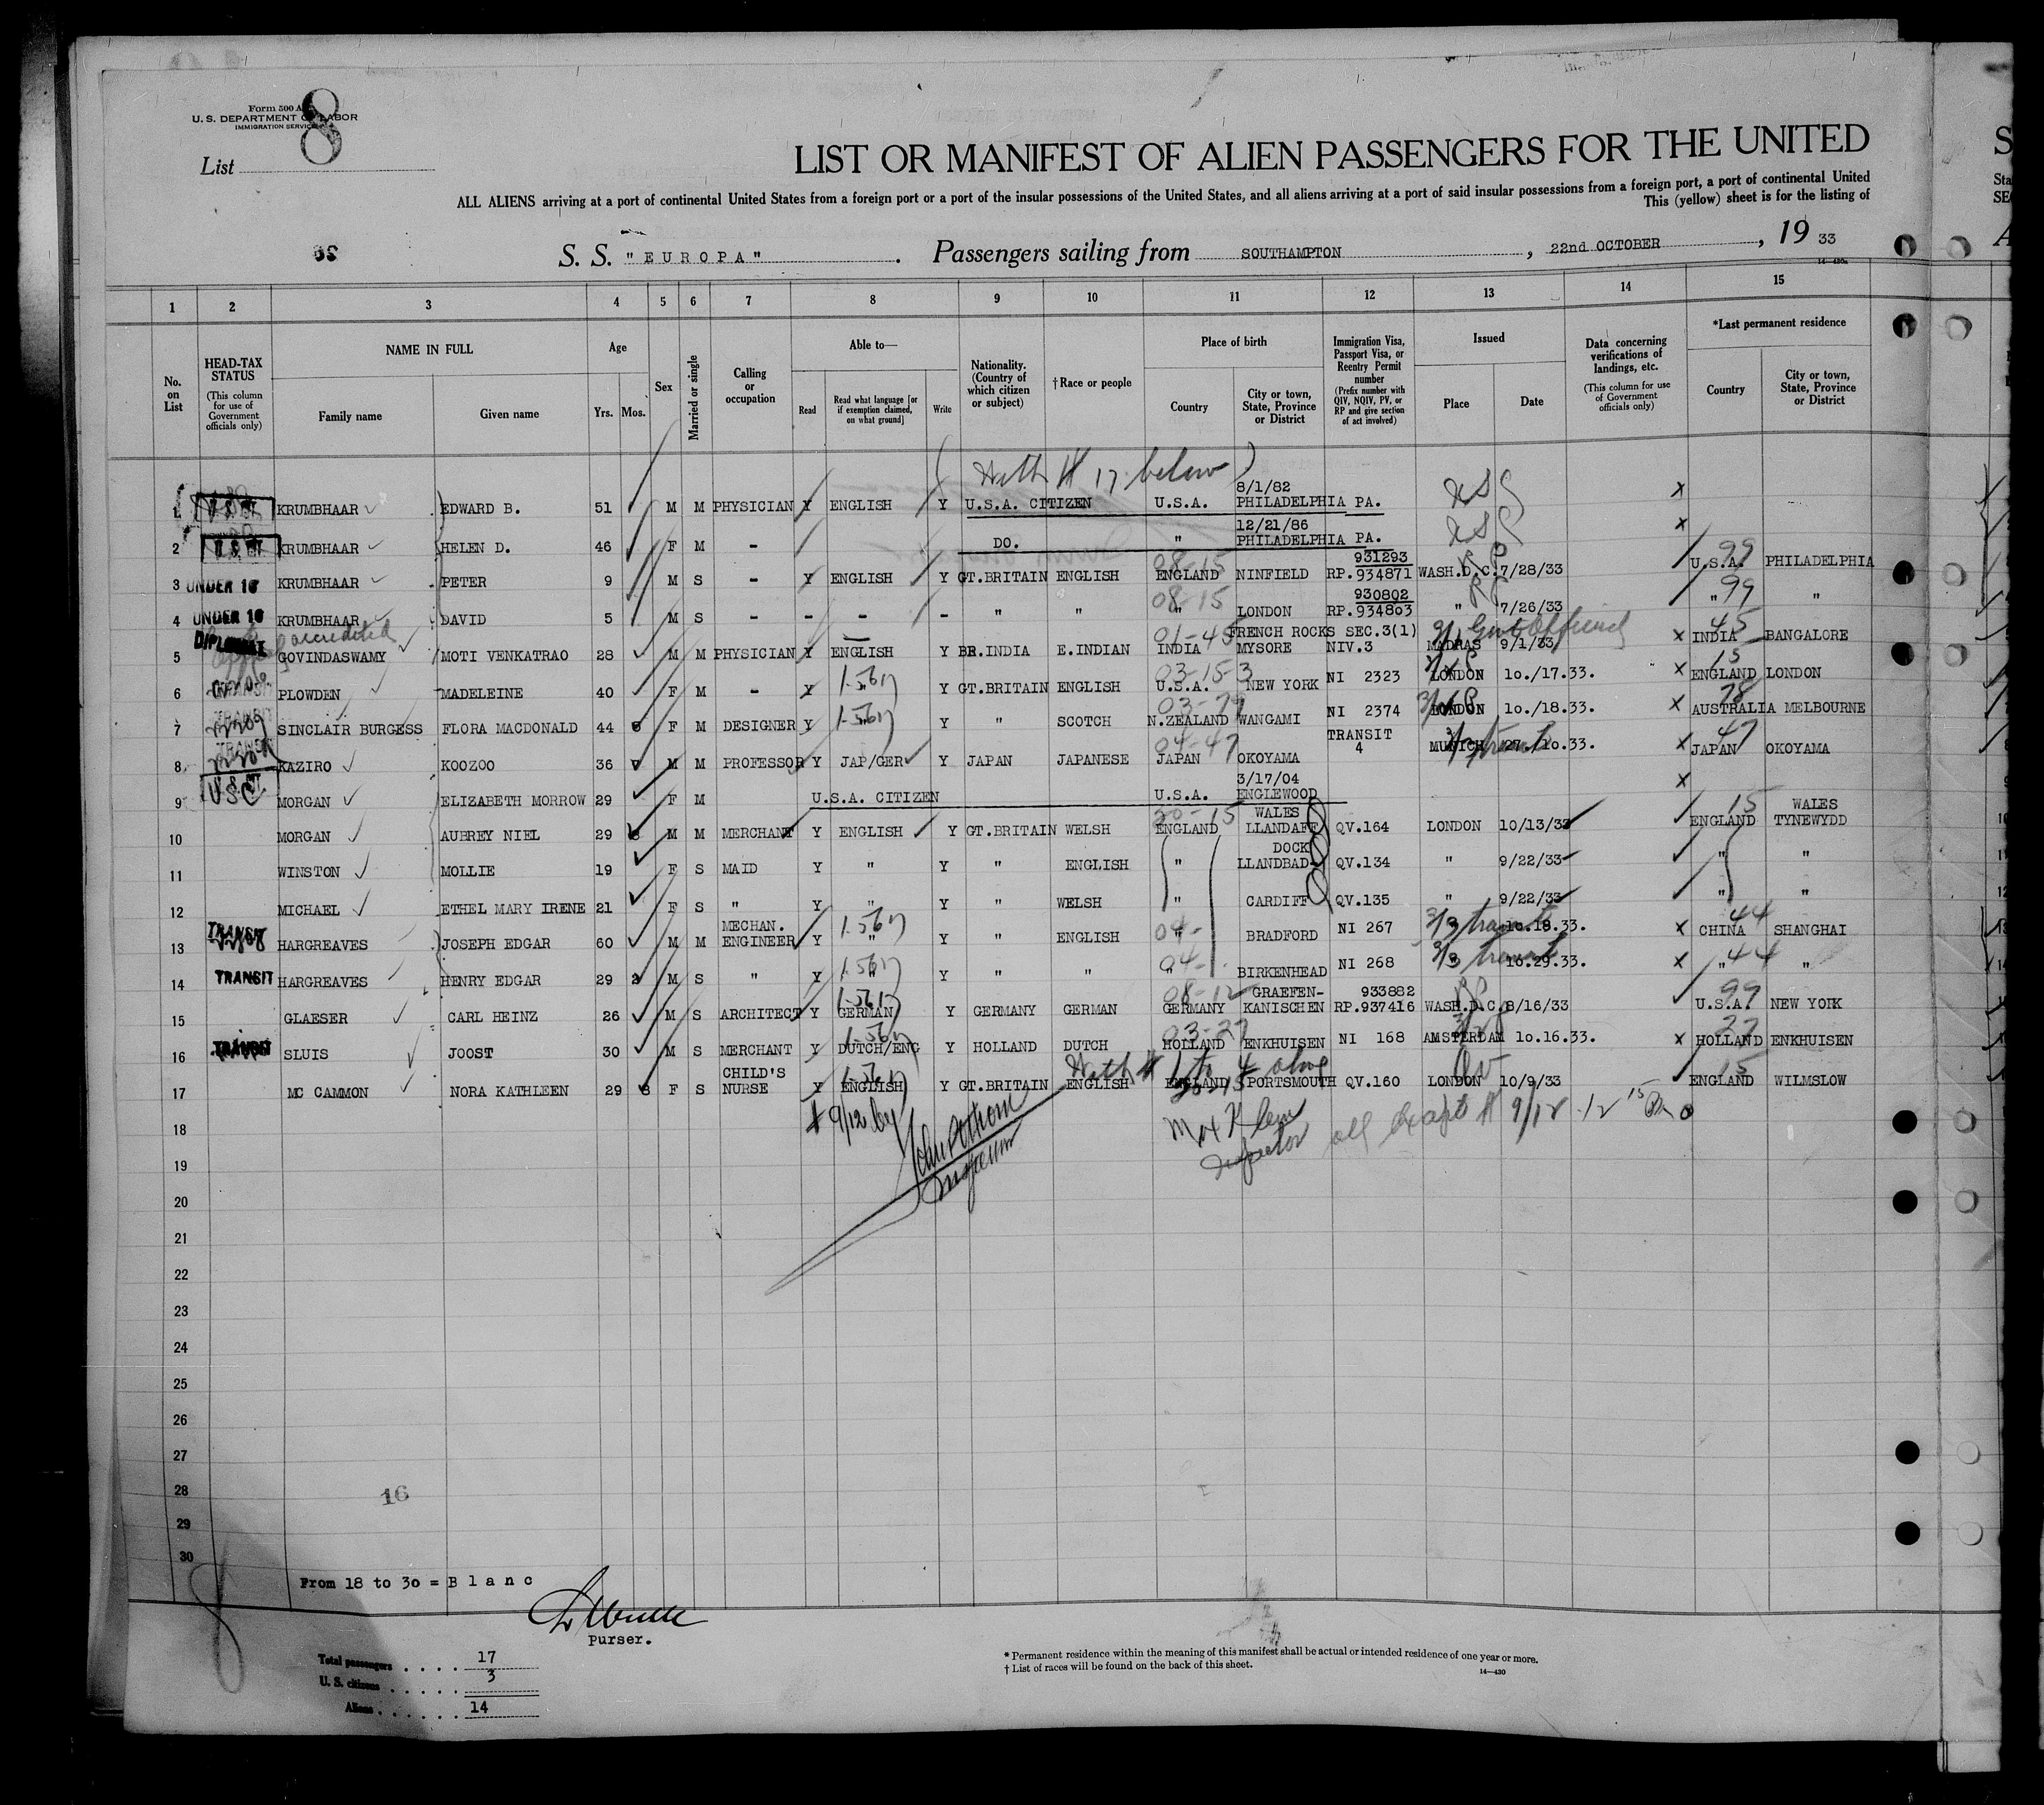 Form 500 A
U. S. DEPARTMENT OF LABOR
IMMIGRATION SERVICE
8
List
LIST OR MANIFEST OF ALIEN PASSENGERS FOR THE UNITED
ALL ALIENS arriving at a port of continental United States from a foreign port or a port of the insular possessions of the United States, and all aliens arriving at a port of said insular possessions from a foreign port, a port of continental United
This (yellow) sheet is for the listing of
S. S. "EUROPA". Passengers sailing from SOUTHAMPTON, 22nd OCTOBER, 19 33
1 2 3 4 5 6 7 8 9 10 11 12 13 14 15
No. on List
HEAD-TAX STATUS (This column for use of Government officials only)
NAME IN FULL
Family name
Given name
Age
Yrs. Mos.
Sex
Married or single
Calling or occupation
Able to—
Read
Read what language [or if exemption claimed, on what ground]
Write
Nationality. (Country of which citizen or subject)
†Race or people
Place of birth
Country
City or town, State, Province or District
Immigration Visa, Passport Visa, or Reentry Permit number (Prefix number with QIV, NQIV, PV, or RP and give section of act involved)
Issued
Place
Date
Data concerning verifications of landings, etc. (This column for use of Government officials only)
*Last permanent residence
Country
City or town, State, Province or District
(With # 17 below)
1 KRUMBHAAR EDWARD B. 51 M M PHYSICIAN Y ENGLISH Y U.S.A. CITIZEN U.S.A. 8/1/82 PHILADELPHIA PA. X
2 KRUMBHAAR HELEN D. 46 F M - DO. " 12/21/86 PHILADELPHIA PA. X
3 UNDER 16 KRUMBHAAR PETER 9 M S - Y ENGLISH Y GT.BRITAIN ENGLISH 08-15 ENGLAND NINFIELD 931293 RP.934871 WASH.D.C. 7/28/33 99 U.S.A. PHILADELPHIA
4 UNDER 16 KRUMBHAAR DAVID 5 M S - - - - " " 08-15 " LONDON 930802 RP.934803 " 7/26/33 " 99 "
5 DIPLOMAT accredited GOVINDASWAMY MOTI VENKATRAO 28 M M PHYSICIAN Y ENGLISH Y BR.INDIA E.INDIAN 01-45 INDIA FRENCH ROCKS MYSORE SEC.3(1) NIV.3 MADRAS 9/1/33 Govt Official X 45 INDIA BANGALORE
6 PLOWDEN MADELEINE 40 F M - Y " Y GT.BRITAIN ENGLISH 03-15-3 U.S.A. NEW YORK NI 2323 LONDON 10./17.33. X 15 ENGLAND LONDON
7 SINCLAIR BURGESS FLORA MACDONALD 44 F M DESIGNER Y " Y " SCOTCH N.ZEALAND WANGAMI NI 2374 LONDON 10./18.33. X 78 AUSTRALIA MELBOURNE
8 KAZIRO KOOZO 36 M M PROFESSOR Y JAP/GER Y JAPAN JAPANESE 04-47 JAPAN OKOYAMA TRANSIT 4 MUNICH 27./10.33. X 47 JAPAN OKOYAMA
9 USC MORGAN ELIZABETH MORROW 29 F M U.S.A. CITIZEN U.S.A. 3/17/04 ENGLEWOOD X
10 MORGAN AUBREY NIEL 29 M M MERCHANT Y ENGLISH Y GT.BRITAIN WELSH 20-15 ENGLAND WALES LLANDAFF QV.164 LONDON 10/13/33 15 ENGLAND WALES TYNEWYDD
11 WINSTON MOLLIE 19 F S MAID Y " Y " ENGLISH " DOCK LLANDBAD- QV.134 " 9/22/33 " "
12 MICHAEL ETHEL MARY IRENE 21 F S " Y " Y " WELSH " CARDIFF QV.135 " 9/22/33 " "
13 TRANSIT HARGREAVES JOSEPH EDGAR 60 M M MECHAN. ENGINEER Y " Y " ENGLISH 04- " BRADFORD NI 267 transit 10.18.33. X 44 CHINA SHANGHAI
14 TRANSIT HARGREAVES HENRY EDGAR 29 M S " Y " Y " " 04- " BIRKENHEAD NI 268 transit 10.29.33. X 44 " "
15 GLAESER CARL HEINZ 26 M S ARCHITECT Y GERMAN Y GERMANY GERMAN 08-12 GERMANY GRAEFEN- KANISCHEN 933882 RP.937416 WASH.D.C. 8/16/33 99 U.S.A. NEW YORK
16 TRANSIT SLUIS JOOST 30 M S MERCHANT Y DUTCH/ENG Y HOLLAND DUTCH 03-27 HOLLAND ENKHUISEN NI 168 AMSTERDAM 10.16.33. X 27 HOLLAND ENKHUISEN
With # 1 to 4 above
17 MC CAMMON NORA KATHLEEN 29 F S CHILD'S NURSE Y ENGLISH Y GT.BRITAIN ENGLISH ENGLAND PORTSMOUTH QV.160 LONDON 10/9/33 15 ENGLAND WILMSLOW
# 9/12 by
Inspector
all except # 9/12
18
19
20
21
22
23
24
25
26
27
28
29
30
16
From 18 to 30 = Blanc
purser.
Total passengers . . . . 17
U. S. citizens . . . . . 3
Aliens . . . . . . 14
* Permanent residence within the meaning of this manifest shall be actual or intended residence of one year or more.
† List of races will be found on the back of this sheet.
14—430